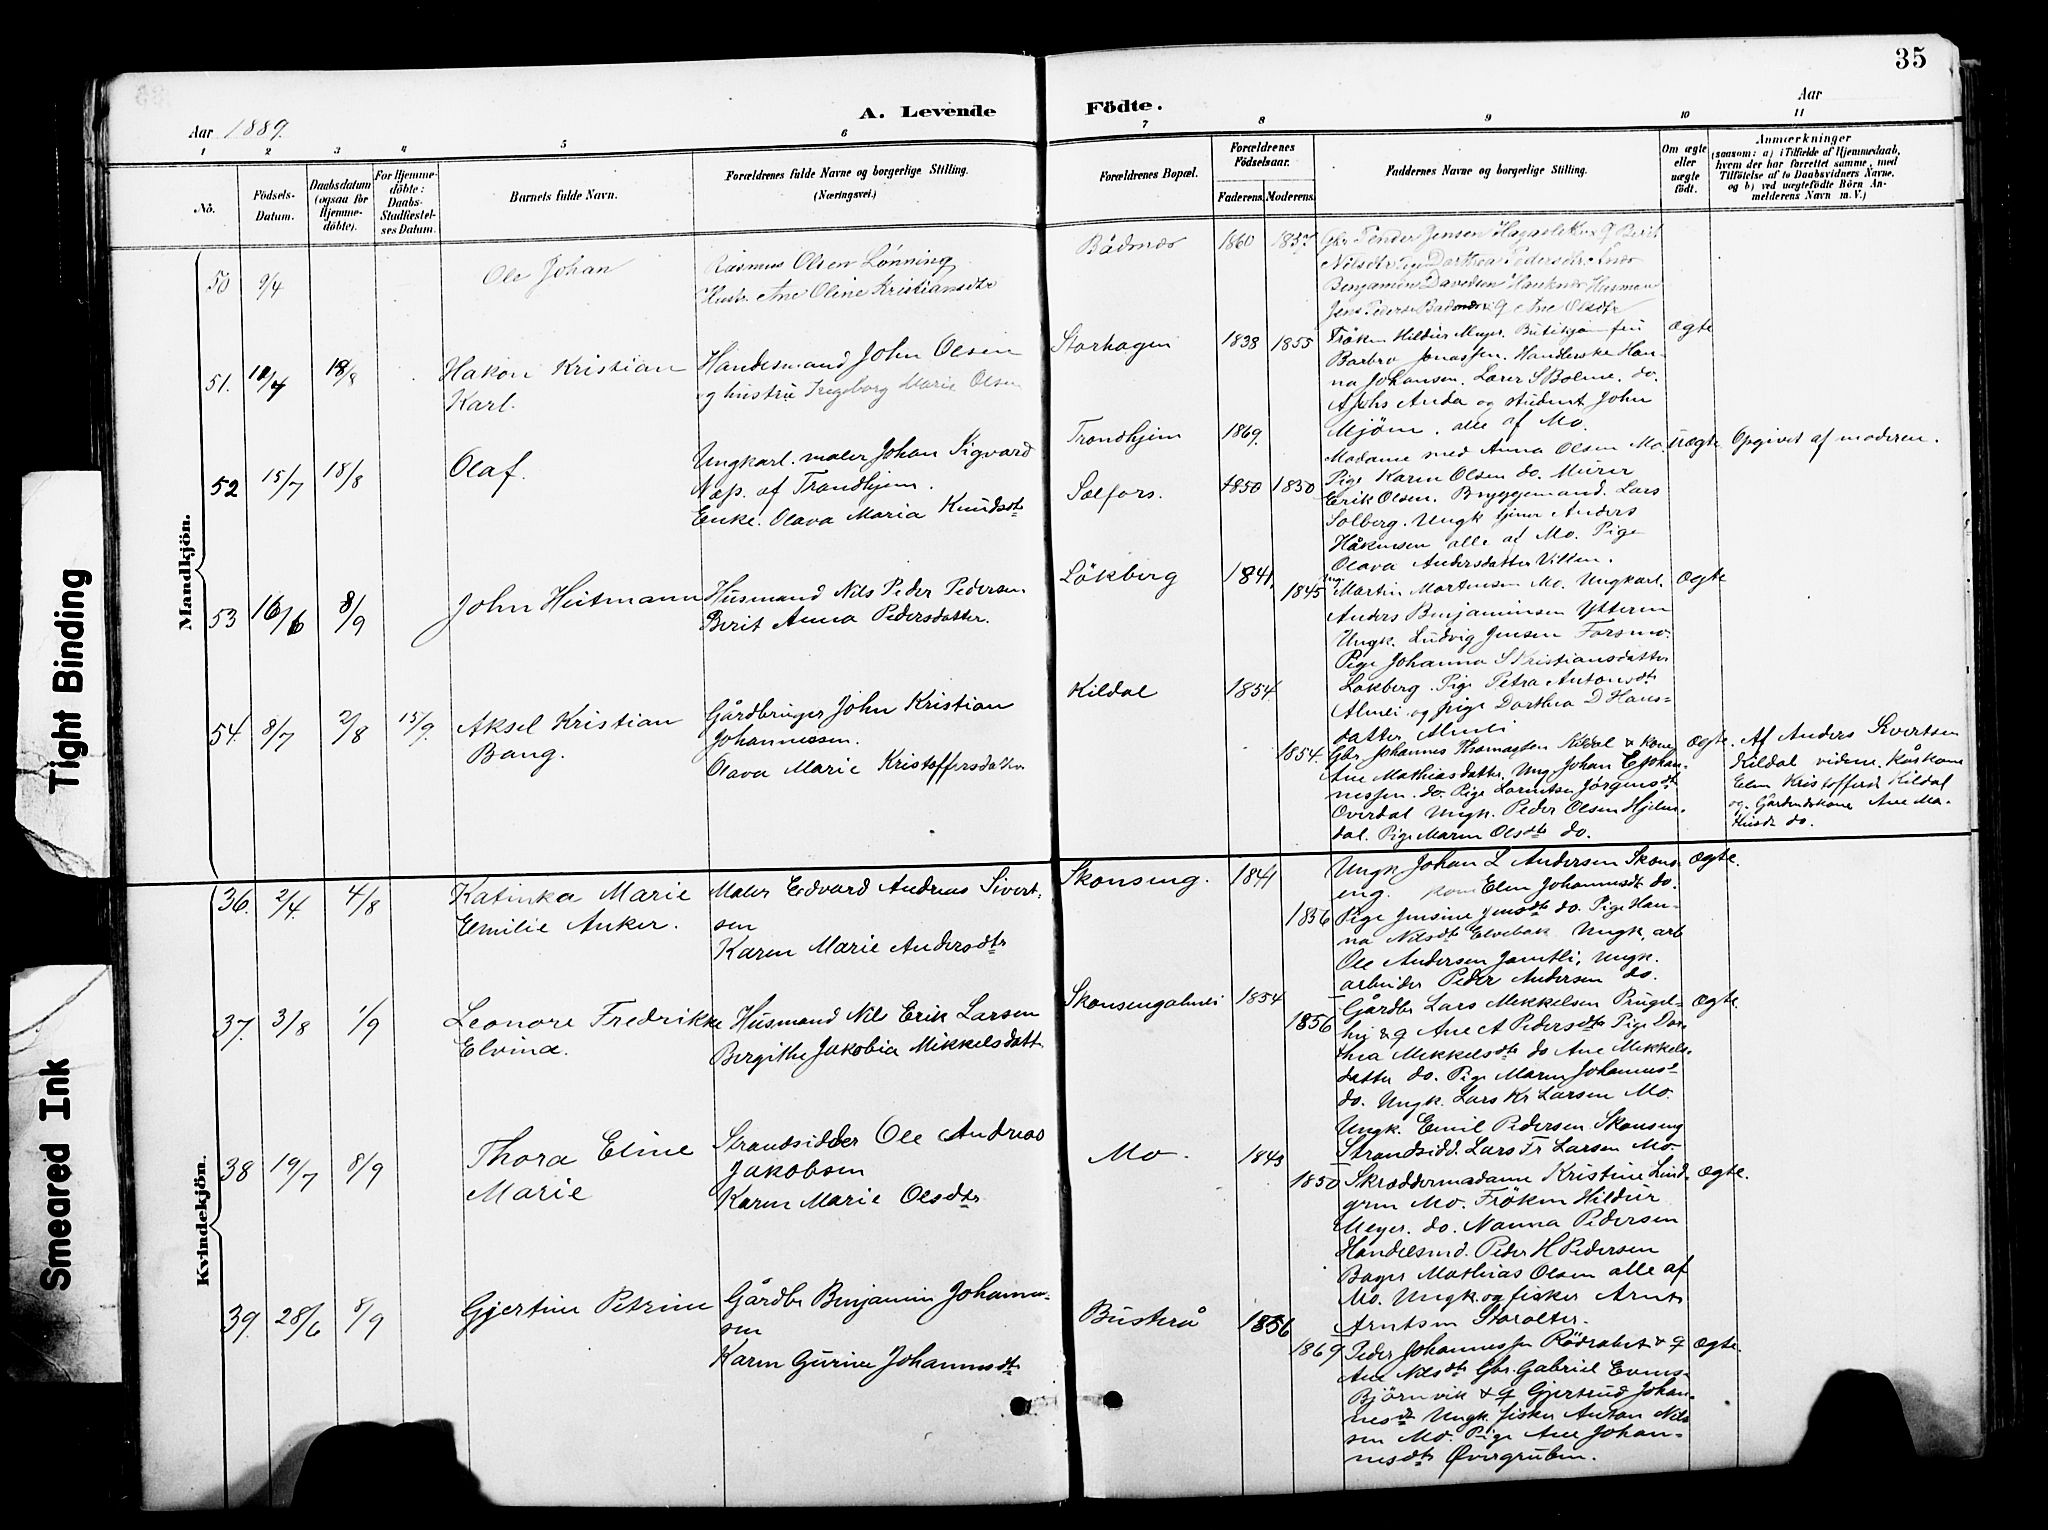 35
Aar 1889.
A. Levende Födte.
Aar
1 2 3 4 5 6 7 8 9 10 11
Nö.
Födsels-
Datum.
Daabsdatum
(ogsaa for
Hjemme-
döbte).
For Hjemme-
döbte:
Daabs-
Stadfæstel-
ses Datum.
Barnets fulde Navn.
Forældrenes fulde Navne og borgerlige Stilling.
(Næringsvei.)
Forældrenes Bopæl.
Forældrenes
Födselsaar.
Faderens. Moderens.
Faddernes Navne og borgerlige Stilling.
Om ægte
eller
uægte
födt.
Anmærkninger
(saasom: a) i Tilfælde af Hjemmedaab,
hvem der har forrettet samme, med
Tilföielse af to Daabsvidners Navne,
og b) ved uægtefödte Börn An-
melderens Navn m. V.)
Mandkjön.
50 9/4
Ole Johan
Rasmus Olsen Lönning
Hustr. Ane Oline Kristiansdtr
Bådsnes
1860
Nilsdtr Pige Dorthea Pedersdtr
Jens Peders Ane Olsdtr
51. 18/8
Hakon Kristian
Karl.
Handesmand John Olsen
og hustru Ingeborg Marie Olsen
Storhagen
1838 1855
Fröken Hildur Meyer.
Barbro Jonassen. Handlerske Han-
na Johansen. Lærer S Bolme. do.
Anda og student John
Mjöen. alle af Mo.
ægte
52 15/7 18/8
Olaf.
Ungkarl. maler Johan Sigvard
Næss. af Trondhjem.
Enke. Olava Maria Knudsdtr
Trondhjem
Selfors.
1869.
1850 1850
Madame med Anna Olsen Mo.
Pige Karen Olsen do. Murer
Erik Olsen. Bryggemand. Lars
Solberg. Ungk tjener Anders
Håkensen alle af Mo. Pige
Olava Andersdatter Villen.
uægte
Opgivet af moderen.
53 16/6 8/9
John Heitmann
Husmand Nils Peder Pedersen.
Berit Anna Pedersdatter.
Lökberg
1841.
1845
Martin Mortensen Mo. Ungkarl.
Anders Benjaminsen Ytteren
Ungk. Ludvig Jensen Forsmo.
Pige Johanna S Kristiansdatter
Lökberg. Pige Petra Antonsdtr
Almli og pige Dorthea D Hans-
datter Almli
ægte
54. 8/7 2/8 15/9.
Aksel Kristian
Bang.
Gårdbruger John Kristian
Johannesen.
Olava Marie Kristoffersdatter
Kildal
1854.
1854.
Gbr. Johannes Kildal & kone
Ane Mathiasdatter. Ung. Johan
nessen. do. Pige Jörgensdtr
Overdal Ungk. Peder Olsen Hjelm-
dal. Pige Maren Olsdtr do.
ægte.
Af Anders Sivertsen
Kildal vidne.
Elen Kristoffersd Kildal
og Gårdmdskone Ane Ma-
do.
Kvindekjön.
36. 2/4. 4/8
Katinka Marie
Emilie Anker.
Maler Edvard Andreas Sivert-
sen
Karen Marie Andersdtr
Skonseng.
1841
1856
Ungk Johan L Andersen Skons-
eng. kone Elen Johannesdt do.
Pige Jensine Jensdtr do. Pige Han-
na Nilsdtr Elvebak Ungk. arb
Ole Andersen Jamtli, Ungk.
arbeider Peder Andersen do.
ægte.
37. 3/8 1/9
Leonore Fredrikke
Elvina.
Husmand Nils Erik Larsen
Bergithe Jakobia Mikkelsdatt.
Skonsengalmei
1854
1856
Gårdbr Lars Mikkelsen Prugel-
hei & q Ane A Pedersdtr Pige Dor-
thea Mikkelsdtr do Ane Mikkels-
datter do. Pige Maren Johannesd
do. Ungk. Lars Kr Larsen Mo.
Ungk. Emil Pedersen Skonseng
Strandsidd. Lars Fr Larsen Mo.
ægte.
38 19/7 8/9
Thora Eline
Marie
Strandsidder Ole Andreas
Jakobsen
Karen Marie Olsdtr
Mo.
1843
1850
Skræddermadame Kristine Lind-
gren Mo. Fröken Hildur
Meyer. do. Nanna Pedersen
Handelsmd. Peder H Pedersen
Bager Mathias Olsen alle af
Mo. Ungk. og fisker Arnt
Arntsen Storalter.
ægte.
39. 28/6 8/9
Gjertine Petrine
Gårdbr Benjamin Johanne-
sen
Karen Gurine Johannesdtr
Bustrå
1856
1869
Peder Johannessen & q
Ane Nilsdtr Gbr. Gabriel Evens-
Björnvik & q Gjertrud Johan-
nesdt Ungk. fisker Anton Nils
sen Mo. Pige Ane Johan-
nesdtr Övergruben.
ægte.
Tight Binding
Smeared Ink